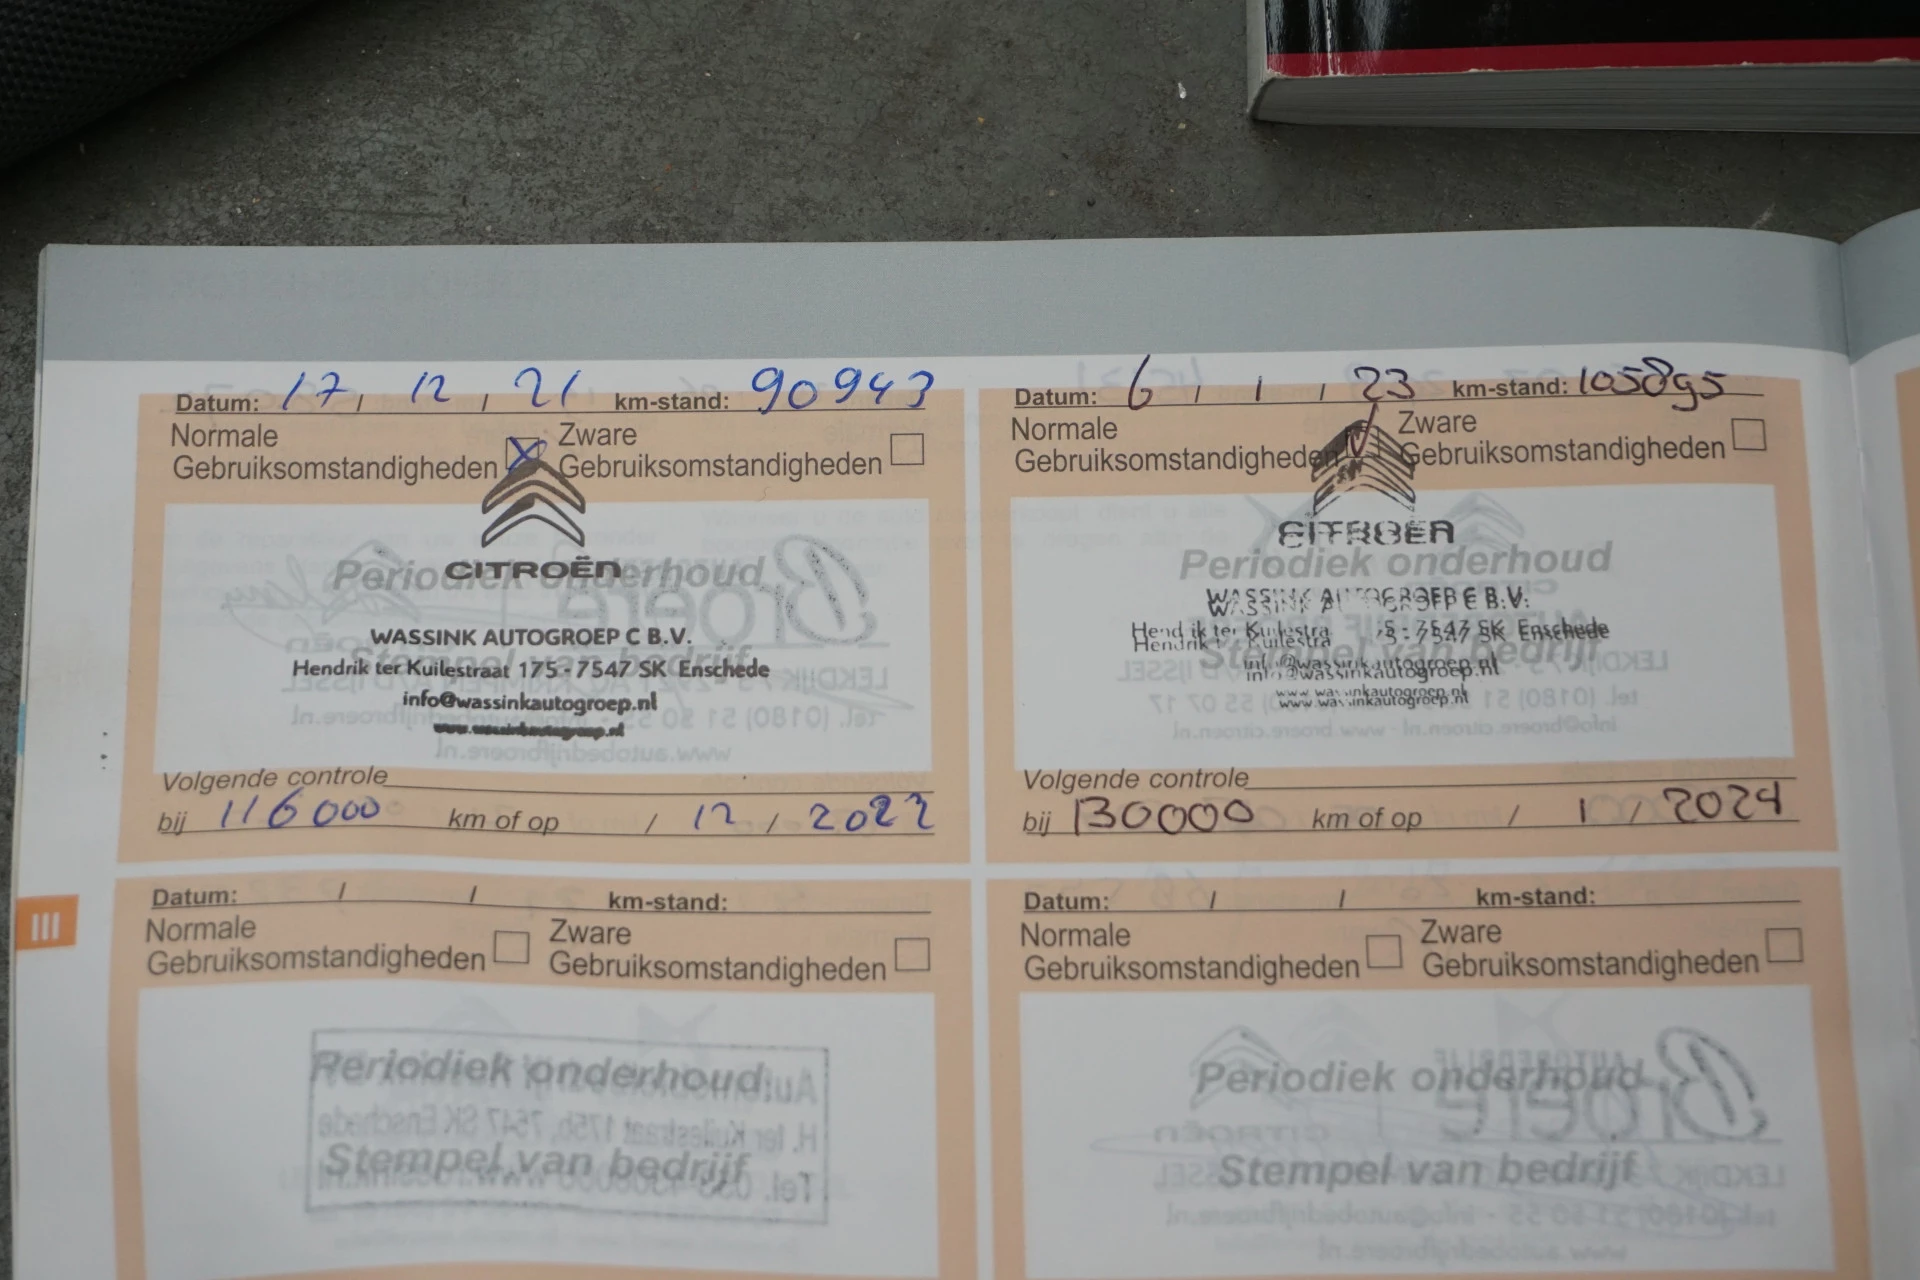 Datum: 17 / 12 / 21 km-stand: 90943
Normale Gebruiksomstandigheden X Zware Gebruiksomstandigheden
CITROËN
Periodiek onderhoud
WASSINK AUTOGROEP C B.V.
Stempel van bedrijf
Hendrik ter Kuilestraat 175 - 7547 SK Enschede
info@wassinkautogroep.nl
www.wassinkautogroep.nl
Volgende controle
bij 116000 km of op / 12 / 2022
Datum: 6 / 1 / 23 km-stand: 105895
Normale Gebruiksomstandigheden Zware Gebruiksomstandigheden
CITROËN
Periodiek onderhoud
WASSINK AUTOGROEP C B.V.
Hendrik ter Kuilestraat 175 - 7547 SK Enschede
Stempel van bedrijf
info@wassinkautogroep.nl
www.wassinkautogroep.nl
Volgende controle
bij 130000 km of op / 1 / 2024
III
Datum: / / km-stand:
Normale Gebruiksomstandigheden Zware Gebruiksomstandigheden
Periodiek onderhoud
Stempel van bedrijf
Datum: / / km-stand:
Normale Gebruiksomstandigheden Zware Gebruiksomstandigheden
Periodiek onderhoud
Stempel van bedrijf